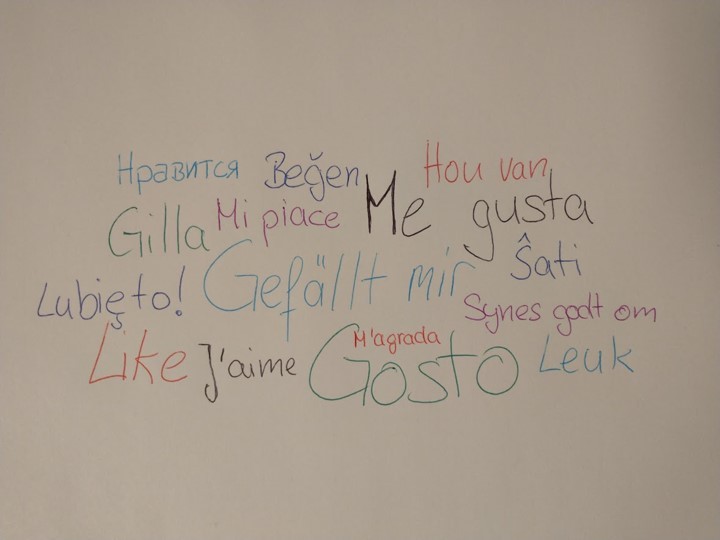 Нравится Beğen Hou van
Gilla Mi piace Me gusta
Lubię to! Gefällt mir Ŝati
Synes godt om
Like J'aime M'agrada Gosto Leuk